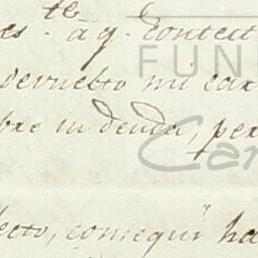 es.te a q.e contest
devuelto mi car
bre mi deuda, per
ecto, conseguí ha
FUN
Car